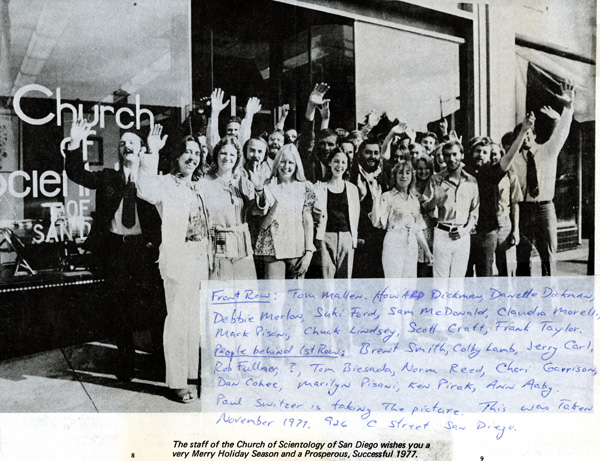 Church
of
Scien
OF
SAN D
Front Row: Tom Mallen. Howard Dickman, Danette Dickman,
Debbie Morlon, Suki Ford, Sam McDonald, Claudia Moreli,
Mark Pison, Chuck Lindsey, Scott Craft, Frank Taylor.
People behind 1st Row: Brent Smith, Colby Lamb, Jerry Carl,
Rob Fullmer, I, Tom Biesada, Norm Reed, Cheri Garrison,
Dan Cohee, Marilyn Pisani, Ken Pirak, Ann Aaby.
Paul Switzer is taking the picture. This was taken
November 1977. 926 C Street San Diego.
The staff of the Church of Scientology of San Diego wishes you a
very Merry Holiday Season and a Prosperous, Successful 1977.
8
9